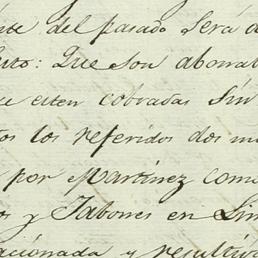 nte del pasado será d
uto: Que son abonab
ue esten cobradas sin
os los referidos dos m
por Martinez como
os y Jabones en Lim
acionada y resultiva